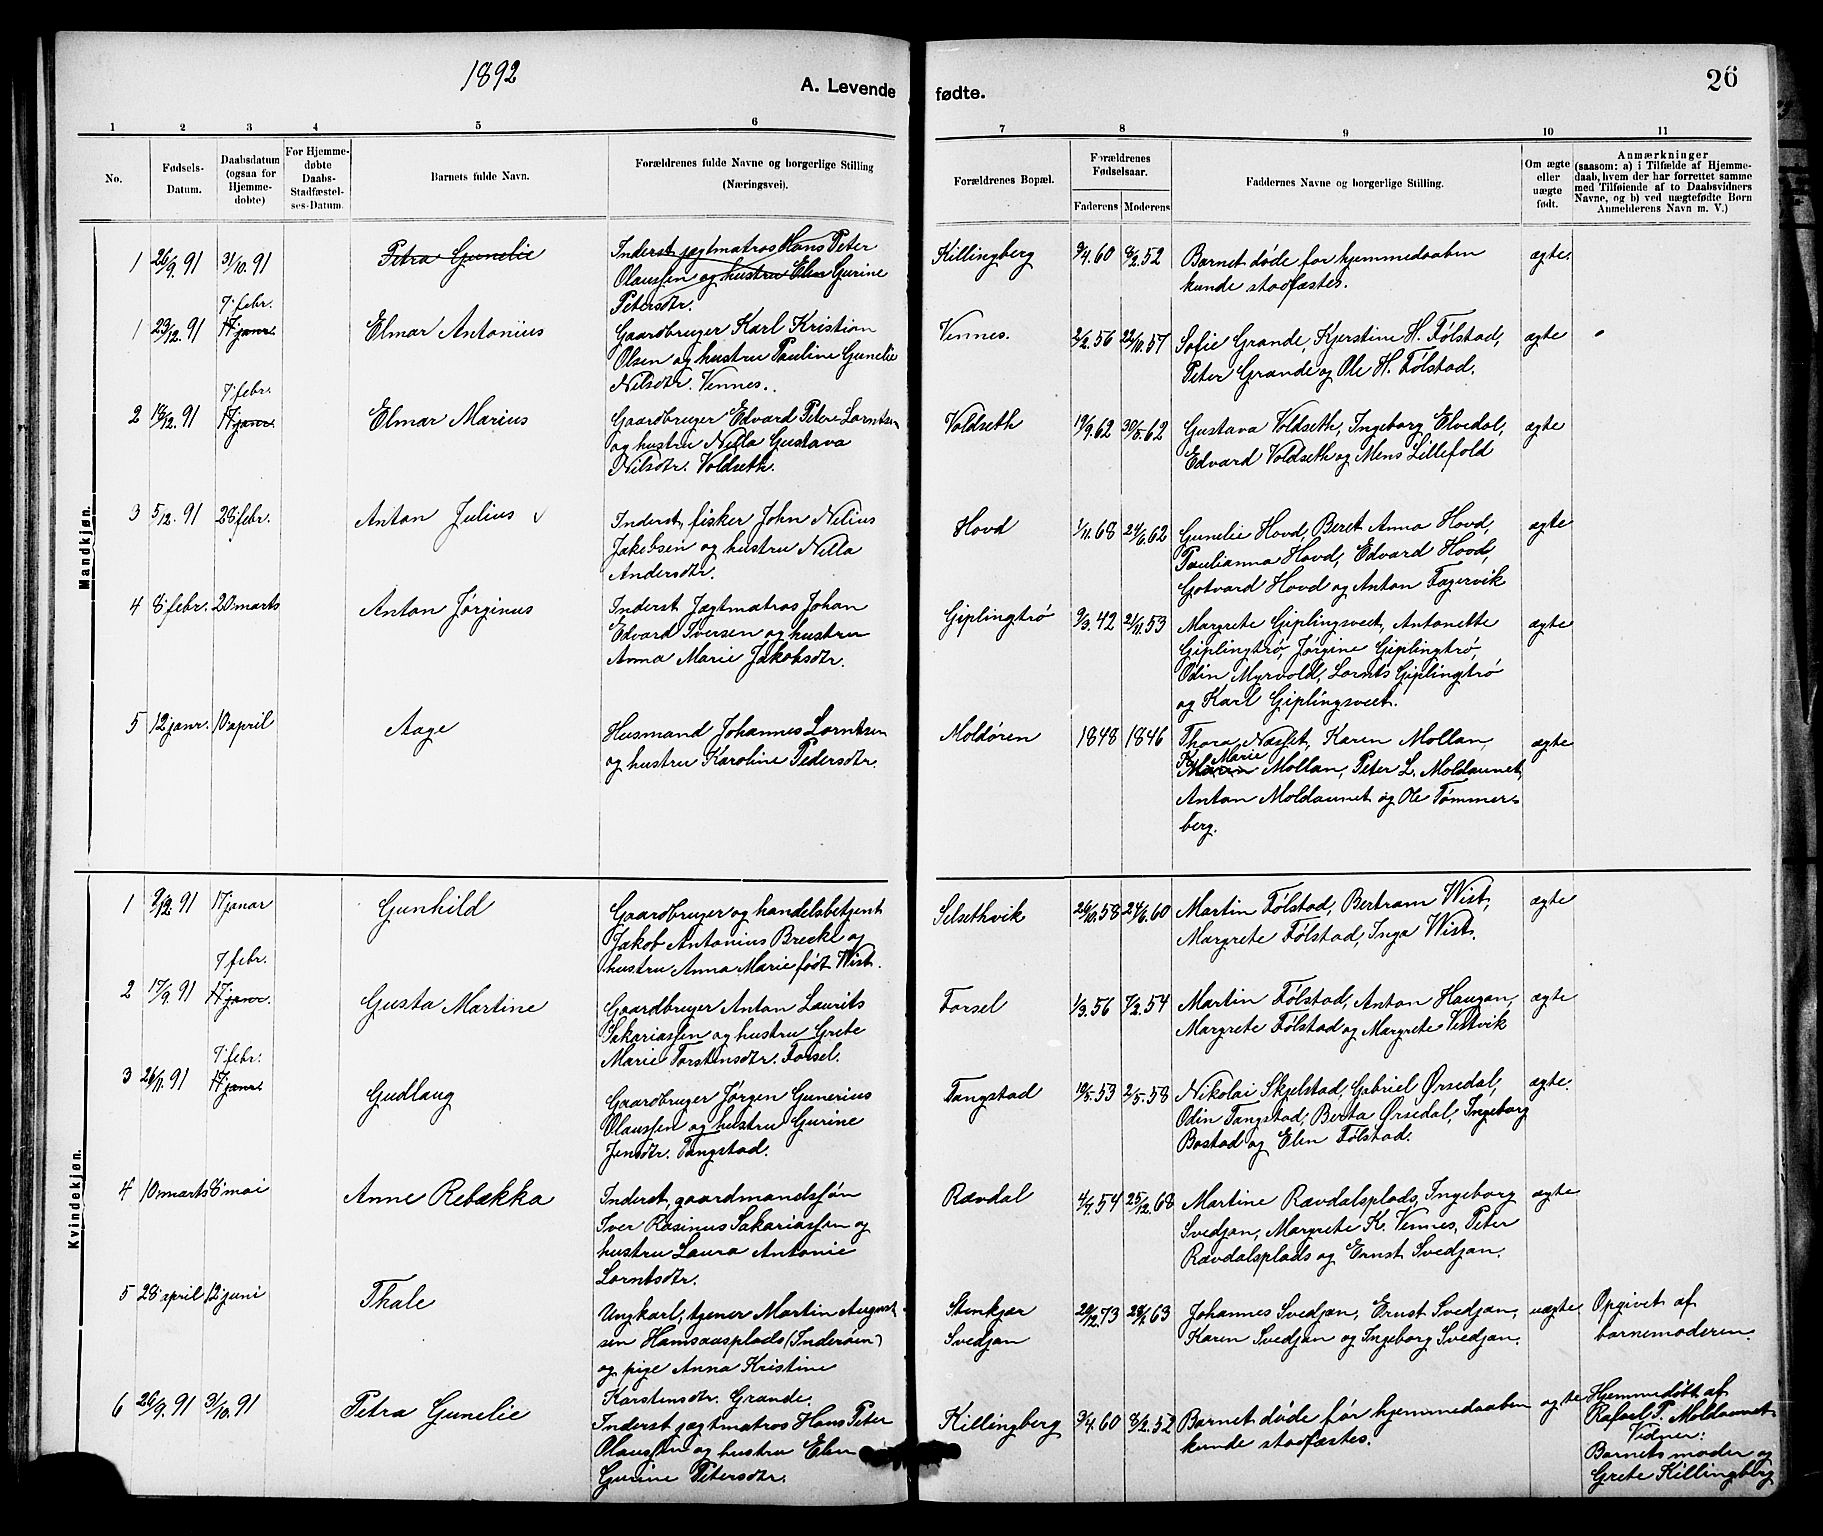 1892
A. Levende fødte.
26
1 2 3 4 5 6 7 8 9 10 11
No.
Fødsels-Datum.
Daabsdatum (ogsaa for Hjemme-døbte)
For Hjemme-døbte Daabs-Stadfæstel-ses-Datum.
Barnets fulde Navn.
Forældrenes fulde Navne og borgerlige Stilling (Næringsvei).
Forældrenes Bopæl.
Forældrenes Fødselsaar.
Faderens Moderens
Faddernes Navne og borgerlige Stilling.
Om ægte eller uægte født.
Anmærkninger
(saasom: a) i Tilfælde af Hjemme-
daab, hvem der har forrettet samme
med Tilføiende af to Daabsvidners
Navne, og b) ved uægtefødte Børn
Anmelderens Navn m. V.)
Mandkjøn.
1 26/9. 91 31/10. 91 Petra Gunelie Inderst jægtmatros Hans Peter Killingberg 9/4. 60 8/2. 52 Barnet døde før hjemmedaaben ægte
Olaussen og hustru Elen Gurine kunde stadfæstes.
Petersdtr.
7. febr.
1 23/12. 91 17 janr. Elmar Antonius Gaardbruger Karl Kristian Vennes. 2/2. 56 22/10. 57 Sofie Grande, Kjerstine H. Følstad, ægte
Olsen og hustru Pauline Gunelie Peter Grande og Ole H. Følstad.
Nilsdtr. Vennes.
7. febr.
2 18/12. 91 17 janr. Elmar Marius Gaardbruger Edvard Peter Lorntsen Voldseth 19/9. 62 30/8. 62 Gustava Voldseth, Ingeborg Elvedal, ægte
og hustru Nilla Gustava Edvard Voldseth og Mens Lillefold
Nilsdtr. Voldseth.
3 5/12. 91 28 febr. Anton Julius Inderst, fisker John Nelius Hovd 1/11. 68 24/6. 62 Gunelie Hovd, Beret Anna Hovd, ægte
Jakobsen og hustru Nilla Paulianna Hovd, Edvard Hovd,
Andersdtr. Gotvard Hovd og Anton Fagervik
4 8 febr. 20 marts Anton Jørginus Inderst Jægtmatros Johan Giplingtrø 9/3. 42 21/11. 53 Margrete Giplingsveet, Antonette ægte
Edvard Iversen og hustru Giplingtrø, Jørgine Giplingtrø,
Anna Marie Jakobsdtr. Odin Myrvold, Lornts Giplingtrø
og Karl Giplingsveet.
5 12 janr. 10 april Aage Husmand Johannes Lorntsen Moldøren 1848 1846 Thora Næsset, Karen Mollan, ægte
og hustru Karoline Pedersdtr. K. Marie Mollan, Peter L. Moldaunet,
Anton Moldaunet og Ole Tømmers-
berg.
Kvindekjøn.
1 9/12. 91 17 janar Gunhild Gaardbruger og handelsbetjent Selsethvik 26/10. 58 24/6. 60 Martin Følstad, Bertram Wist, ægte
Jakob Antonius Brecke og Margrete Følstad, Inga Wist.
hustru Anna Marie født Wist.
7 febr.
2 17/9. 91 17 janr. Gusta Martine Gaardbruger Anton Laurits Forsel 1/3. 56 7/2. 54 Martin Følstad, Anton Haugan, ægte
Sakariassen og hustru Grete Margrete Følstad og Margrete Vestvik
Marie Torstensdtr. Forsel.
7. febr.
3 26/11. 91 17 janr. Gudlaug Gaardbruger Jørgen Gunerius Tangstad 19/5. 53 2/5. 58 Nikolai Skjelstad, Gabriel Ørsedal, ægte
Olaussen og hustru Gurine Odin Tangstad, Berta Ørsedal, Ingeborg
Jensdtr. Tangstad. Bostad og Elen Følstad.
4 10 marts 8 mai Anne Rebækka Inderst, gaardmandssøn Rævdal 4/7. 54 25/12. 68 Martine Rævdalsplads, Ingeborg ægte
Iver Rasinus Sakariassen og Svedjan, Margrete K. Vennes, Peter
hustru Laura Antonie Rævdalsplads og Ernst Svedjan.
Lorntsdtr.
5 28 april 12 juni Thale Ungkarl, tjener Martin August- Stenkjær 20/12. 73 28/1. 63 Johannes Svedjan, Ernst Svedjan, uægte Opgivet af
sen Hamsausplads (Inderøen) Svedjan Karen Svedjan og Ingeborg Svedjan. barnemoderen.
og pige Anna Kristine
Karstensdtr. Grande.
6 26/9. 91 31/10. 91 Petra Gunelie Inderst jægtmatros Hans Peter Killingberg 9/4. 60 8/2. 52 Barnet døde før hjemmedaaben ægte Hjemmedøbt af
Olaussen og hustru Elen kunde stadfæstes. Rafael P. Moldaunet
Gurine Petersdtr. Vidner:
Barnets moder og
Grete Killingberg